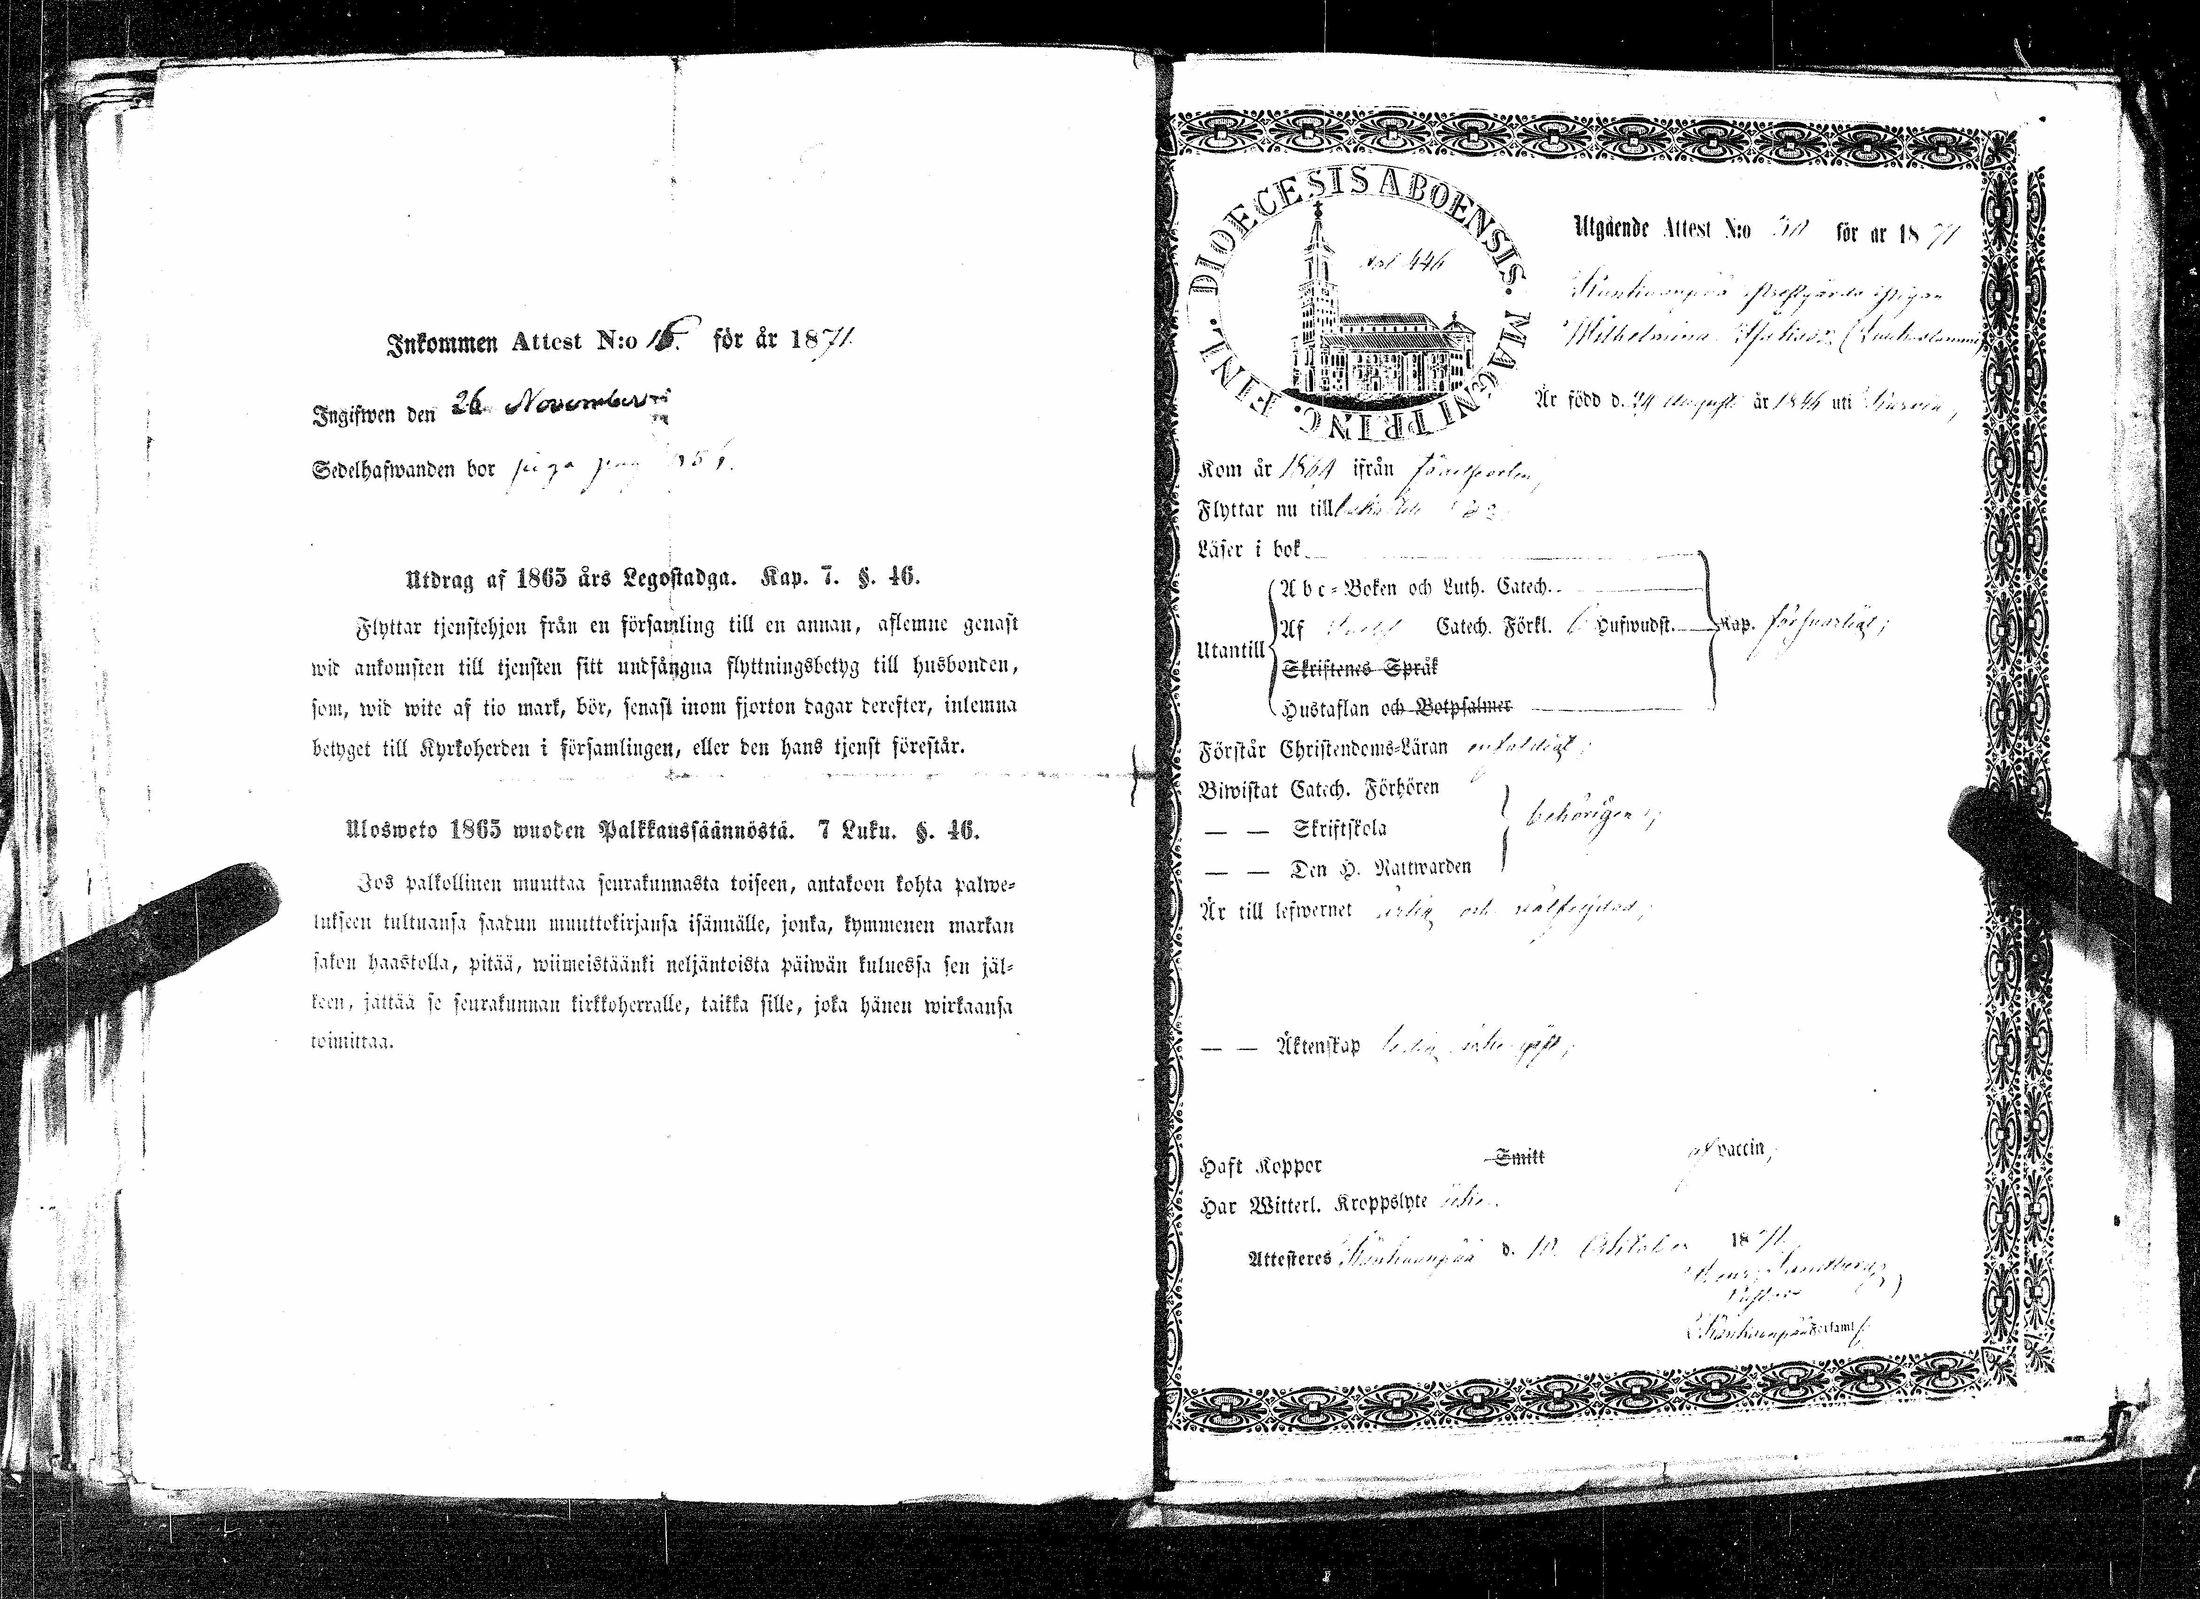 Inkommen Attest N:o 16. för år 1871.
Ingifwen den 26 November
Sedelhafwanden bor
Utdrag af 1865 års Legostadga. Kap. 7. §. 46.
Flyttar tjenstehjon från en församling till en annan, aflemne genast
wid ankomsten till tjensten sitt undfångna flyttningsbetyg till husbonden,
som, wid wite af tio mark, bör, senast inom fjorton dagar derefter, inlemna
betyget till Kyrkoherden i församlingen, eller den hans tjenst förestår.
Ulosweto 1865 wuoden Palkkaussäännöstä. 7 Luku. §. 46.
Jos palkollinen muuttaa seurakunnasta toiseen, antakoon kohta palwe-
lukseen tultuansa saadun muuttokirjansa isännälle, jonka, kymmenen markan
sakon haastolla, pitää, wiimeistäänki neljäntoista päiwän kuluessa sen jäl-
keen, jättää se seurakunnan kirkkoherralle, taikka sille, joka hänen wirkaansa
toimittaa.
DIOECESIS ABOENSIS. MAGNI PRINC. FINL.
446
Utgående Attest N:o för år 1871
Kankaanpää Prestgårds Pigan
Wilhelmina
Är född d. 24 August år 1846 uti
Kom år 1864 ifrån
Flyttar nu till
Läser i bok
Abc-Boken och Luth. Catech.
Utantill
Af Catech. Förkl. 6 Hufwudst.
Kap. försvarligt;
Skriftenes Språk
Hustaflan och Botpsalmer
Förstår Christendoms-Läran enfaldigt;
Biwistat Catech. Förhören
— — Skriftskola
behörigen;
— — Den H. Nattwarden
Är till lefwernet ärlig och välfrejdad;
— — Äktenskap ledig icke
Haft Koppor Smitt af vaccin;
Har Witterl. Kroppslyte icke.
Attesteres Kankaanpää d. 10 Oktober 1871.
Sandberg
Pastor
Kankaanpää Församl: